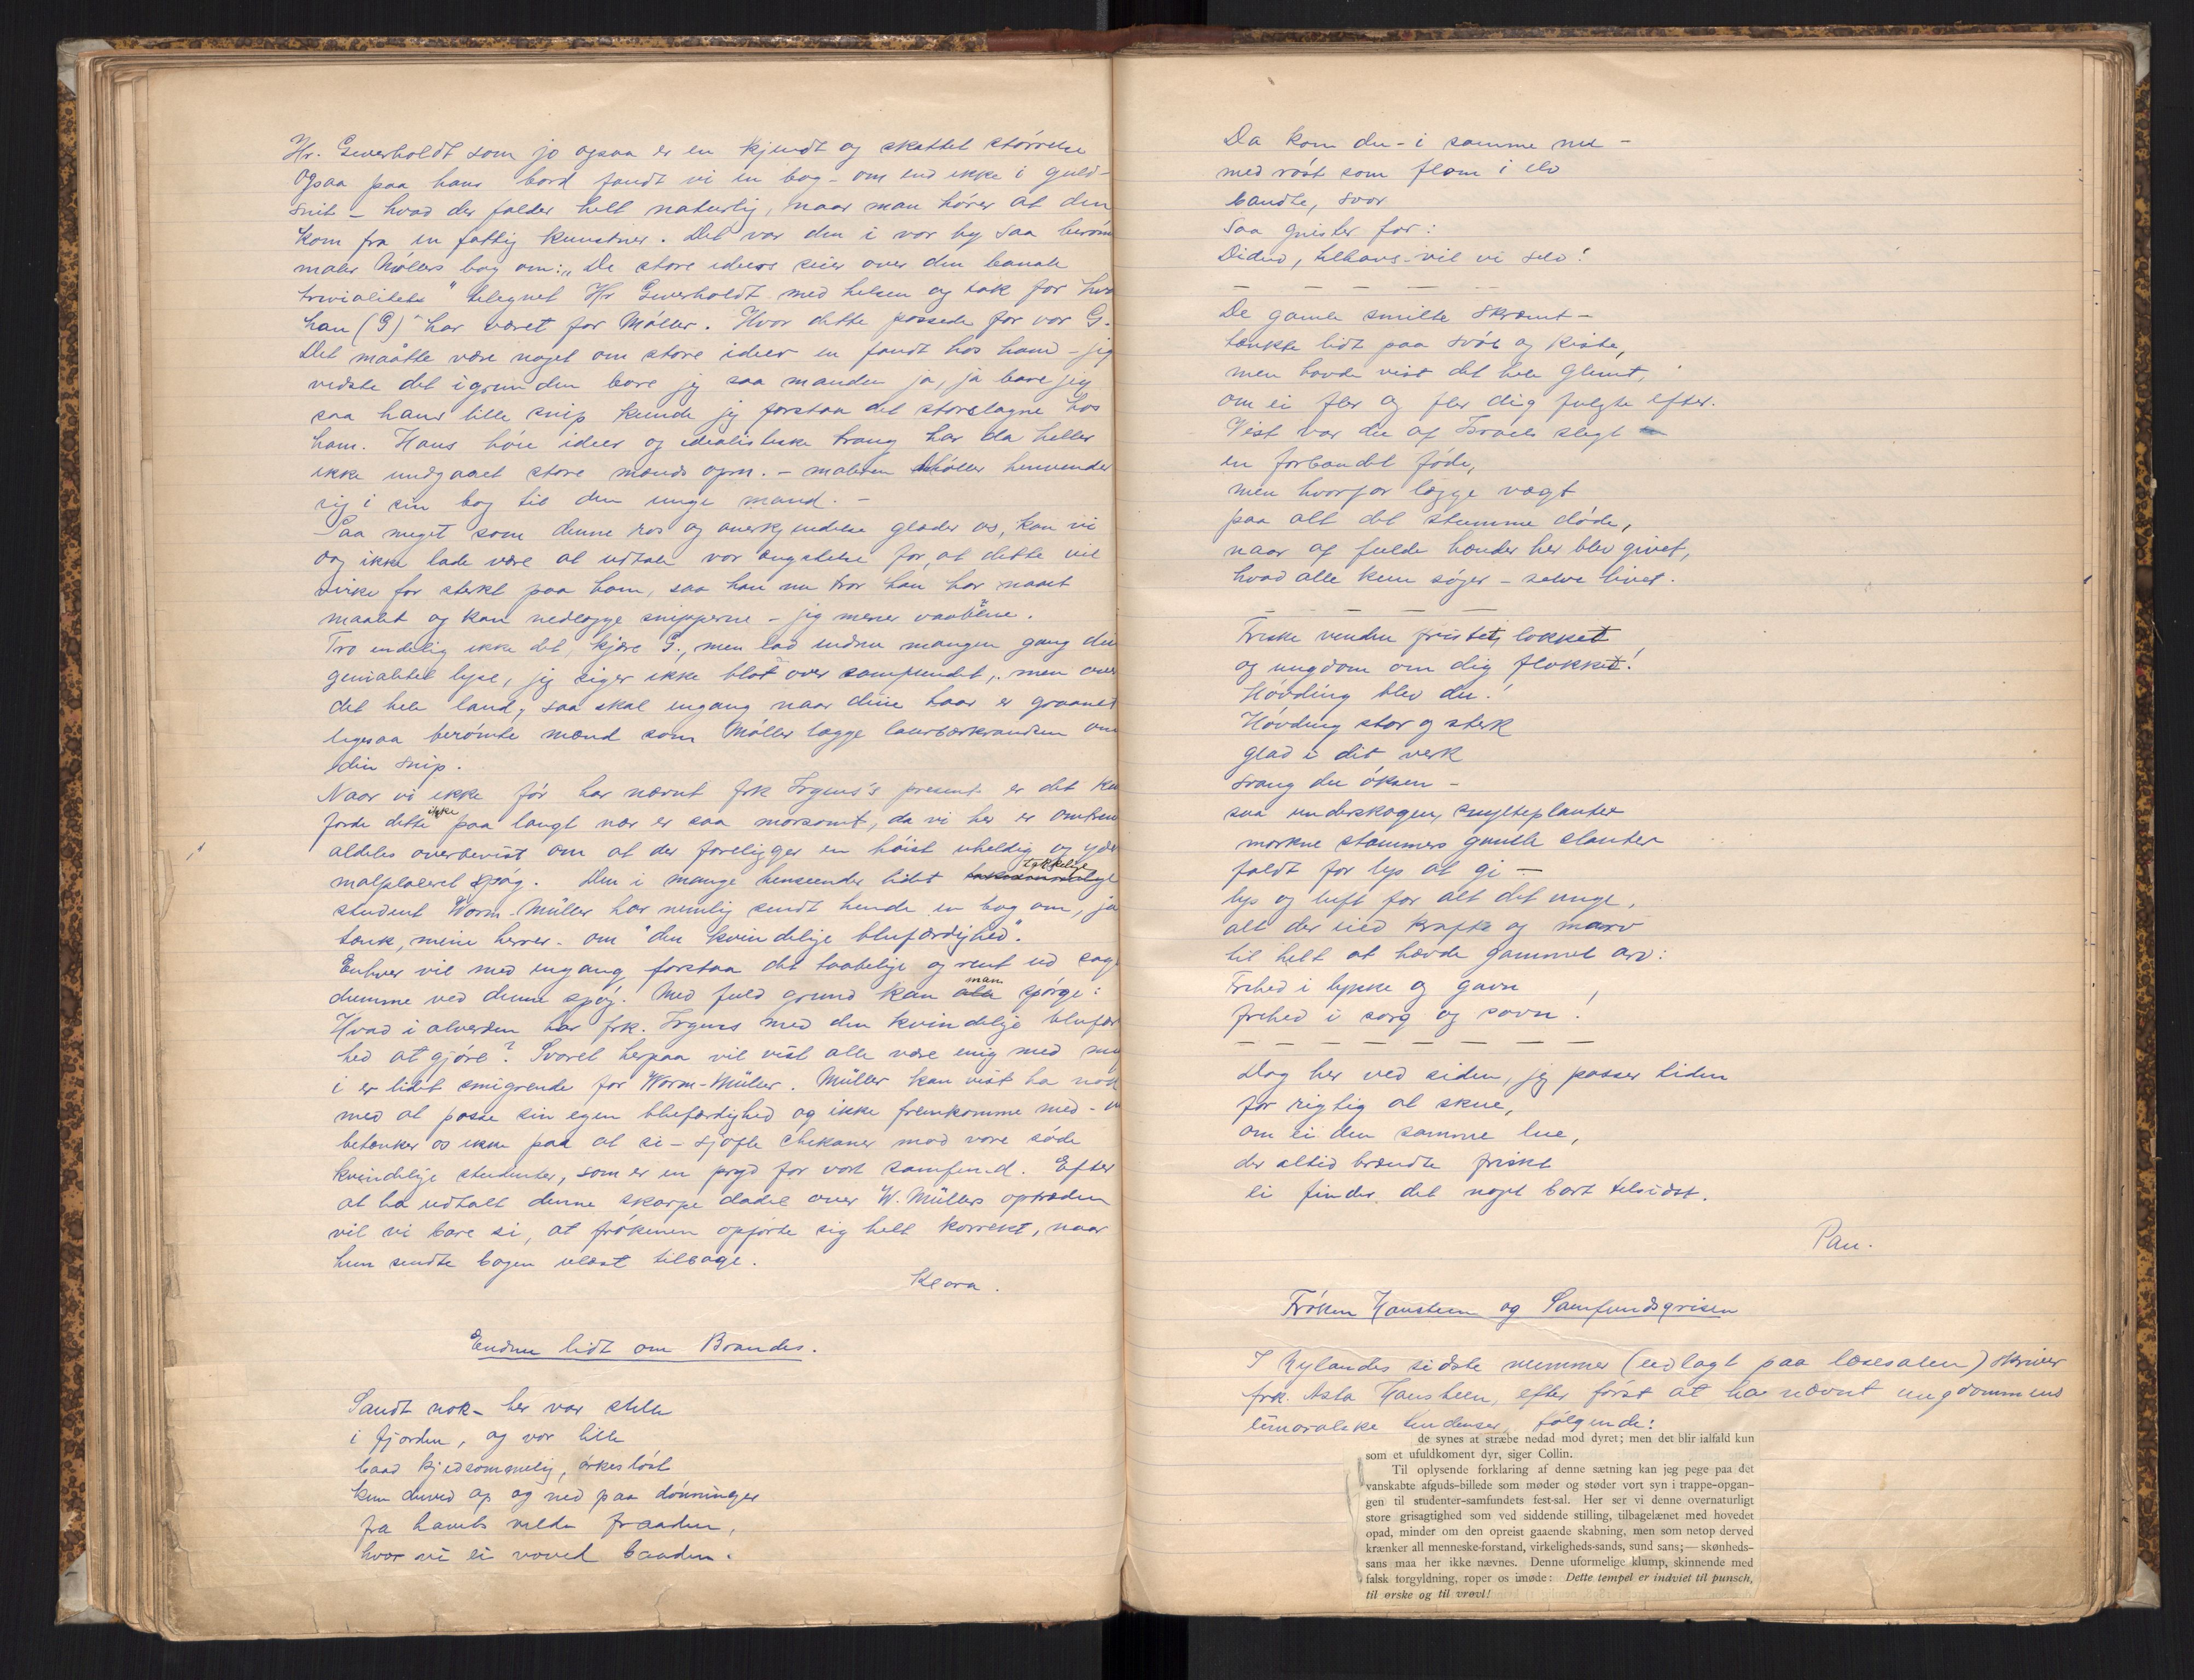 Hr. Gewerholdt som jo ogsaa er en kjendt og skattet størrelse
Ogsaa paa hans bord fandt vi en bog - om end ikke i guld-
snit - hvad der falder helt naturlig, naar man hører at den
kom fra en fattig kunstner. Det var den i vor by saa berøm
maler Møllers bog om: „De store ideers seier over den banale
trivialitet" tilegnet Hr Gewerholdt med hilsen og tak for hva
han (G) har været for Møller. Hvor dette passede for vor G.
Det maatte være noget om store ideer en fandt hos ham - jeg
vidste det igrunden bare jeg saa manden ja, ja bare jeg
saa hans lille snip kunde jeg forstaa det storslagne hos
ham. Hans høie ideer og idealistiske trang har da heller
ikke undgaaet store mænds opm. - maleren Møller henvender
sig i sin bog til den unge mand. -
Saa meget som denne ros og anerkjendelse glæder os, kan vi
dog ikke lade være at udtale vor ængstelse for, at dette vil
virke for sterkt paa ham, saa han nu tror han har naaet
maalet og kan nedlægge snipperne - jeg mener vaabnene.
Tro endelig ikke det, kjære G., men lad endnu mangen gang din
genialitet lyse, jeg siger ikke blot over samfundet, men over
det hele land, saa skal engang naar dine haar er graanet
ligesaa berømte mænd som Møller lægge laurbærkransen om
din snip.
Naar vi ikke før har nævnt frk Irgens's present er det ku
fordi dette ikke paa langt nær er saa morsomt, da vi her er omtren
aldeles overbevist om at der foreligger en høist uheldig og yder
malplaceret spøg. Den i mange henseender lidet takkelige
student Worm-Müller har nemlig sendt hende en bog om, ja
tænk, mine herrer - om "den kvindelige blufærdighed".
Enhver vil med engang forstaa det taabelige og rent ud sagt
dumme ved denne spøg. Med fuld grund kan man spørge:
Hvad i alverden har frk. Irgens med den kvindelige blufær
hed at gjøre? Svaret herpaa vil vist alle være enig med mig
i er lidet smigrende for Worm-Müller. Müller kan vist ha nok
med at passe sin egen blufærdighed og ikke fremkomme med - vi
betænker os ikke paa at si - sjofle chikaner mod vore søde
kvindelige studenter, som er en pryd for vort samfund. Efter
at ha udtalt denne skarpe dadel over W. Müllers optræden
vil vi bare si, at frøkenen opførte sig helt korrekt, naar
hun sendte bogen ulæst tilbage.
Klara.
Endnu lidt om Brandes.
Sandt nok - her var stille
i fjorden, og vor lille
baad kjedsommelig, ørkesløst
kun duved op og ned paa dønninger
fra havets vilde fraaden,
hvor vi ei voved baaden.
Da kom du - i samme nu -
med røst som flom i elv
bandte, svor
saa gnister for:
Didud, tilhavs vil vi selv!
De gamle smilte skræmt -
tænkte lidt paa svøb og kiste,
men havde vist det hele glemt,
om ei fler og fler dig fulgte efter.
Vist var du af Israels slegt
en forbandet føde,
men hvorfor lægge vægt
paa alt det stumme døde,
naar af fulde hænder her blev givet,
hvad alle kun søger - selve livet.
Friske vinden fristet, lokket,
og ungdom om dig flokket!
Høvding blev du!
Høvding stor og sterk
glad i dit verk
svang du øksen -
saa underskogen, snylteplanter
morkne stammers gamle slanter
faldt for lys at gi -
lys og luft for alt det unge,
alt der eied kraft og marv
til helt at hævde gammel arv:
Frihed i lykke og gavn
frihed i sorg og savn!
Dog her ved siden, jeg passer tiden
for rigtig at skue,
om ei den samme lue,
der altid brændte friskt
ei findes det noget bort tilsidst.
Pan.
Frøken Hansteen og Samfundsgrisen
I Nylændes sidste nummer (udlagt paa læsesalen) skriver
frk. Asta Hansteen, efter først at ha nævnt ungdommens
umoralske tendenser, følgende:
de synes at stræbe nedad mod dyret; men det blir ialfald kun
som et ufuldkoment dyr, siger Collin.
Til oplysende forklaring af denne sætning kan jeg pege paa det
vanskabte afguds-billede som møder og støder vort syn i trappe-opgan-
gen til studenter-samfundets fest-sal. Her ser vi denne overnaturligt
store grisagtighed som ved siddende stilling, tilbagelænet med hovedet
opad, minder om den opreist gaaende skabning, men som netop derved
krænker all menneske-forstand, virkeligheds-sands, sund sans; — skønheds-
sans maa her ikke nævnes. Denne uformelige klump, skinnende med
falsk forgyldning, roper os imøde: Dette tempel er indviet til punsch,
til ørske og til vrøvl!